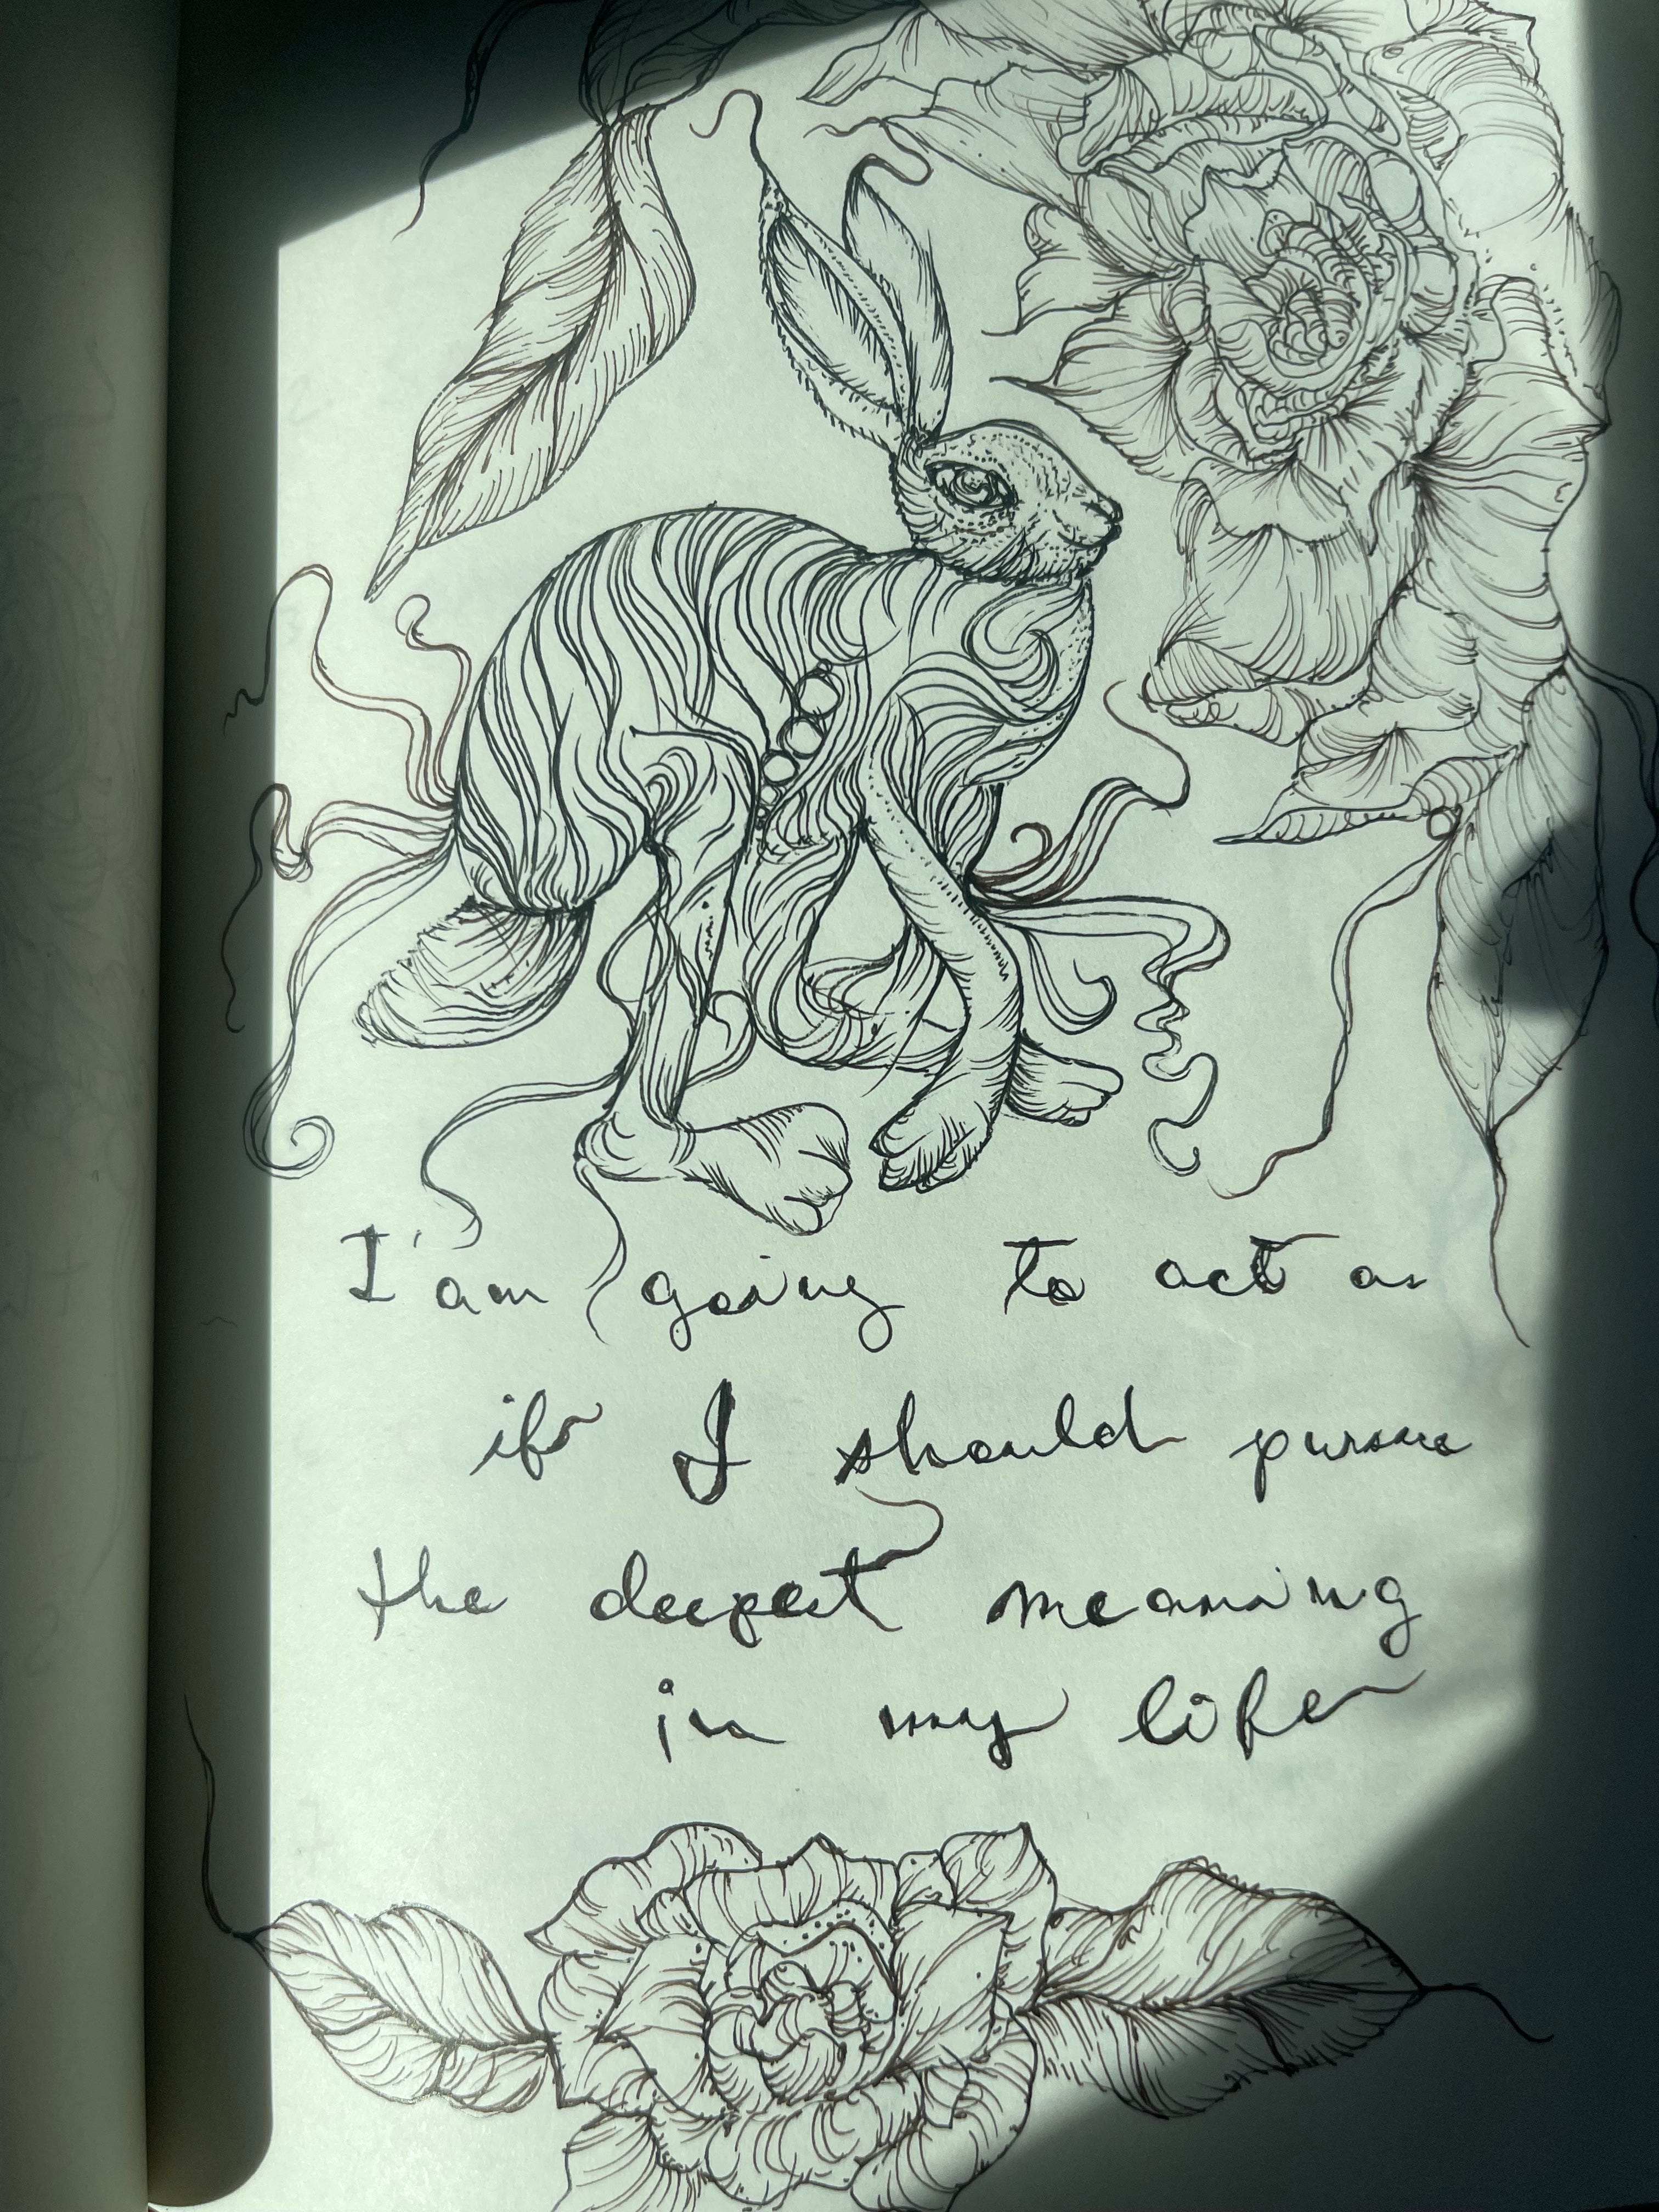 I'am going to act as
if I should pursue
the deepest meaning
in my life